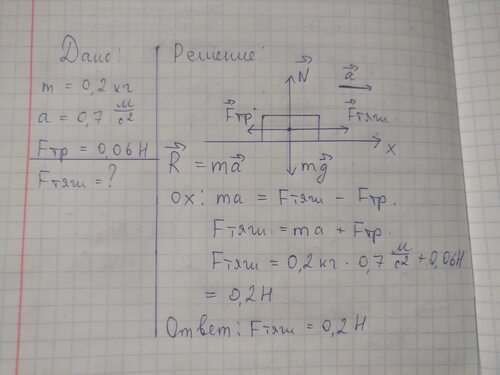 Дано:
m = 0,2 кг
a = 0,7 м/с2
Fтр = 0,06Н
Fтяги = ?
Решение:
N
a
Fтр.
Fтяги
x
mg
R = ma
ox: ma = Fтяги - Fтр.
Fтяги = ma + Fтр.
Fтяги = 0,2 кг · 0,7 м/с2 + 0,06Н
= 0,2Н
Ответ: Fтяги = 0,2Н